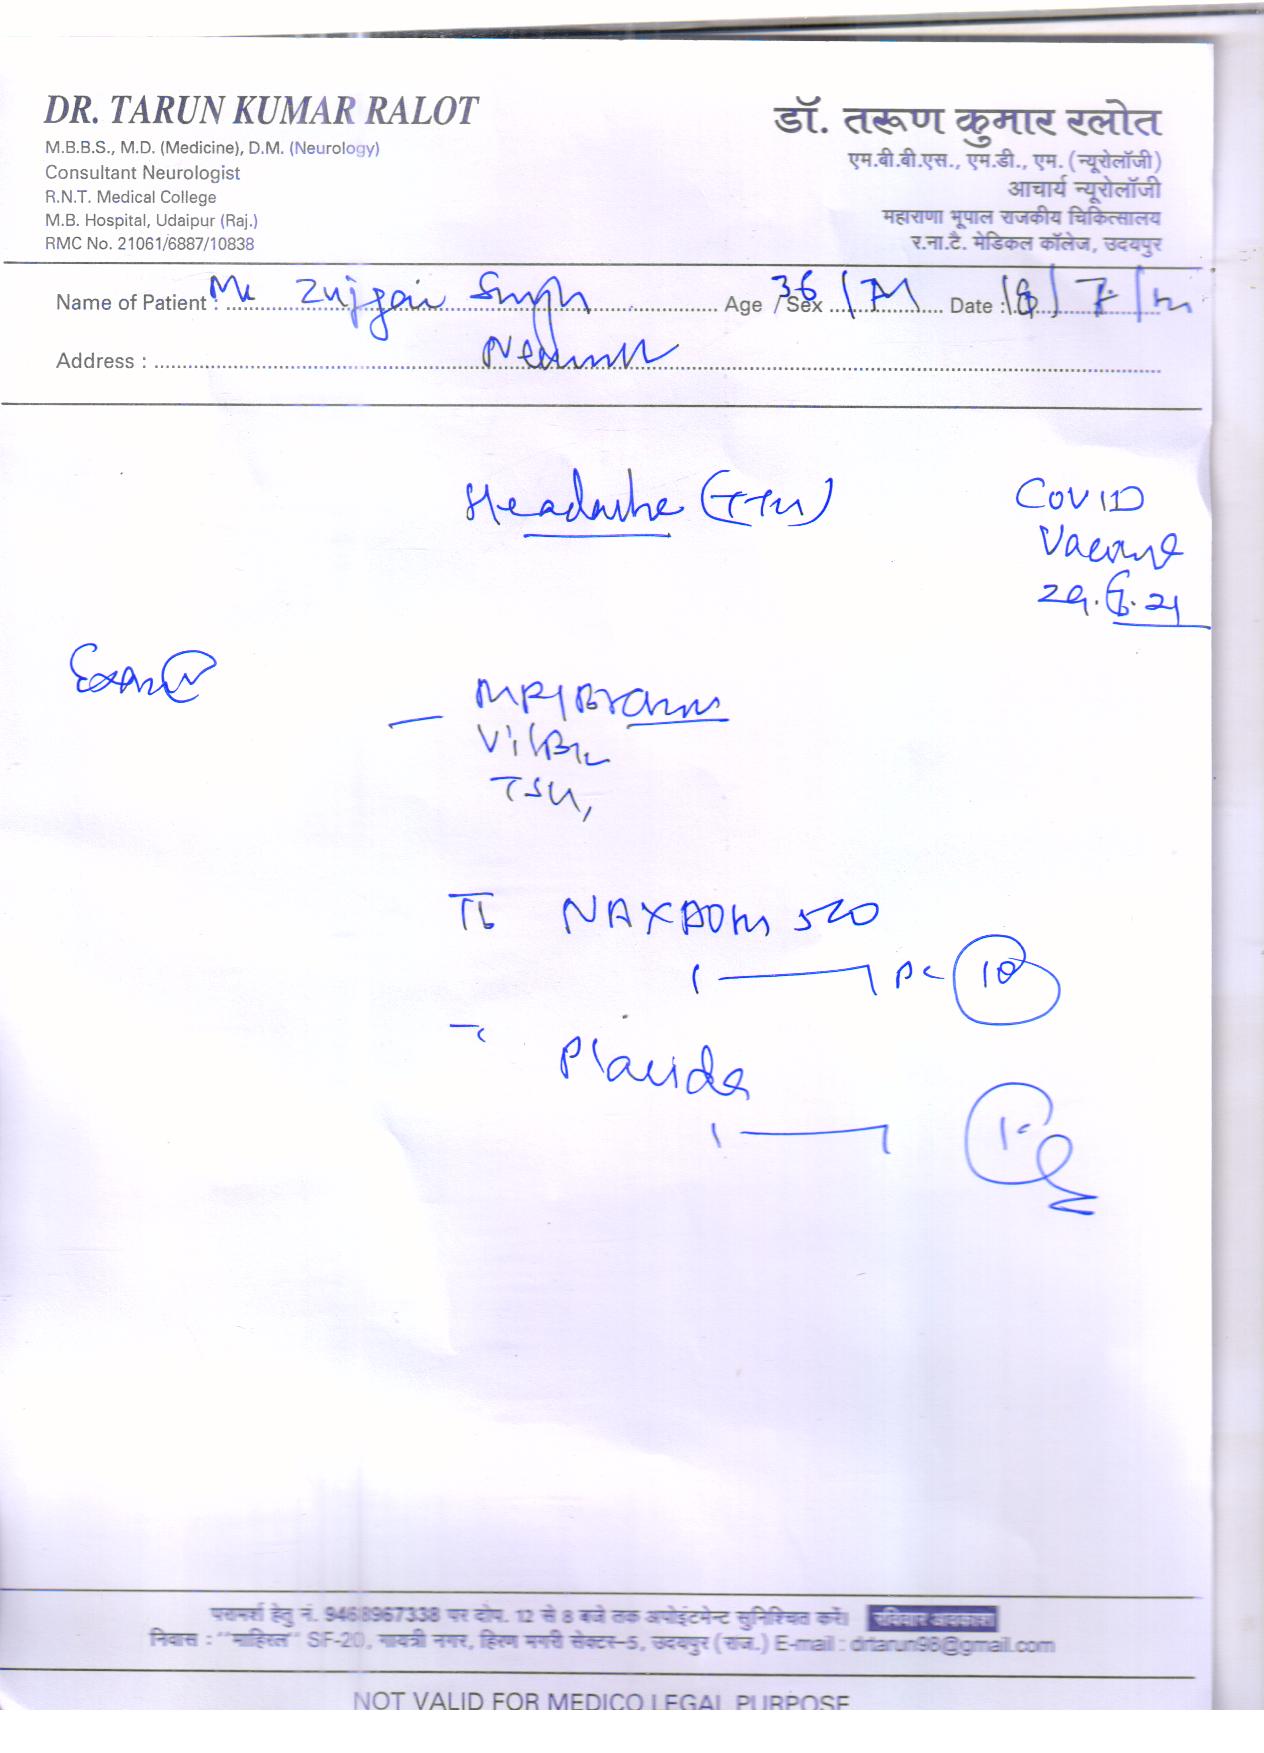 DR. TARUN KUMAR RALOT
M.B.B.S., M.D. (Medicine), D.M. (Neurology)
Consultant Neurologist
R.N.T. Medical College
M.B. Hospital, Udaipur (Raj.)
RMC No. 21061/6887/10838
डॉ. तरूण कुमार रलोत
एम.बी.बी.एस., एम.डी., एम. (न्यूरोलॉजी)
आचार्य न्यूरोलॉजी
महाराणा भूपाल राजकीय चिकित्सालय
र.ना.टै. मेडिकल कॉलेज, उदयपुर
Name of Patient : Mr Singh Age / Sex 36 / M Date :
Address :
Headache
COVID
29.6.21
Exam (N)
MRI Brain
Vit B12
TSH,
NAXDOM 500
1 1 PC 10
Placida
1 1
परामर्श हेतु नं. 9468967338 पर दोप. 12 से 8 बजे तक अपोइंटमेन्ट सुनिश्चित करें। रविवार अवकाश
निवास : "माहिरल" SF-20, गायत्री नगर, हिरण मगरी सेक्टर-5, उदयपुर (राज.) E-mail : drtarun98@gmail.com
NOT VALID FOR MEDICO LEGAL PURPOSE